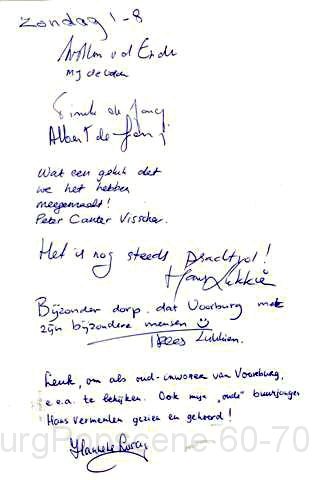 Zondag 1-8
Willem vd Ende
MJ de
de Jong
Albert de Jong
Wat een geluk dat
we het hebben
meegemaakt!
Peter Canter Visscher.
Het is nog steeds prachtvol!
Hans Lukkien
Bijzonder dorp dat Voorburg met
zijn bijzondere mensen
Trees Lukkien.
Leuk, om als oud-inwoner van Voorburg,
e.e.a. te bekijken. Ook mijn "oude" buurjongen
Hans Vermeulen gezien en gehoord!
Hanneke
urgPopscene 60-70